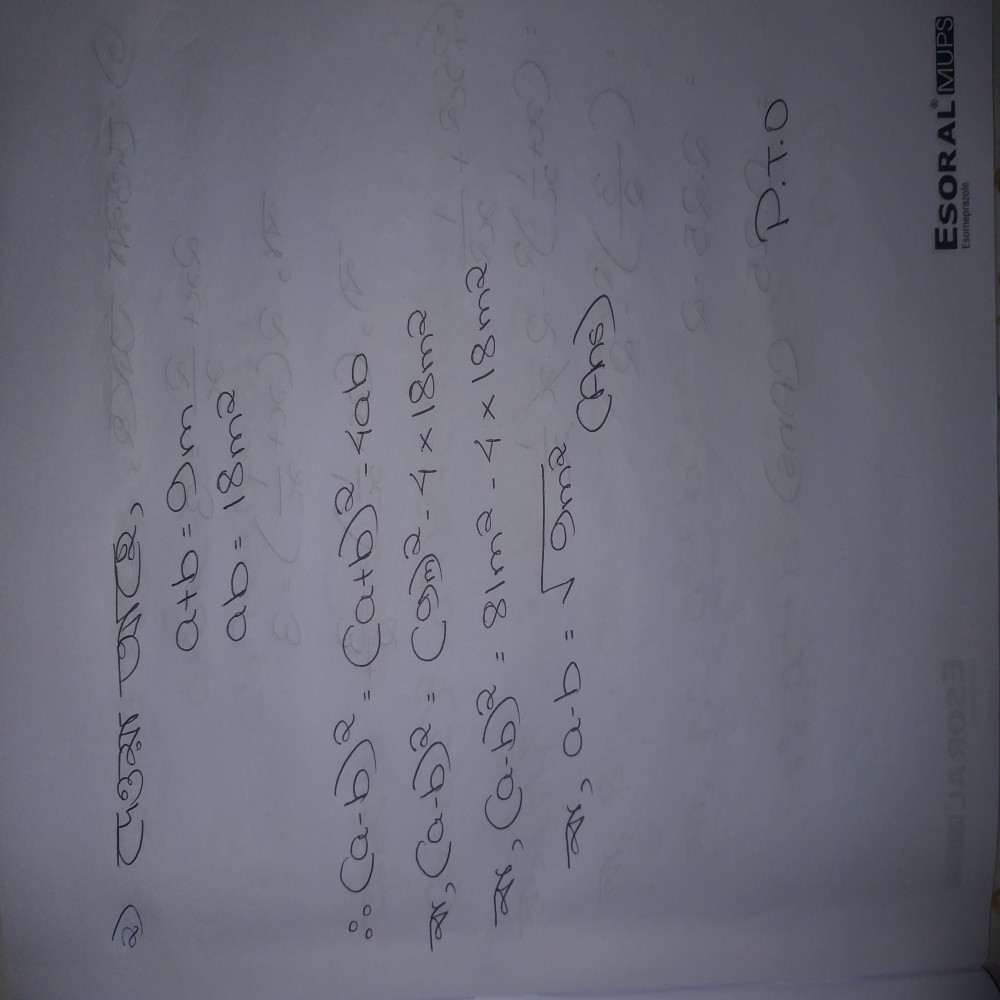 ২) দেওয়া আছে,
a+b = 9m
ab = 18m²
∴ (a-b)² = (a+b)² - 4ab
বা, (a-b)² = (9m)² - 4 × 18m²
বা, (a-b)² = 81m² - 4 × 18m²
বা, a-b = √9m² (Ans)
P.T.O
ESORAL® MUPS
Esomeprazole